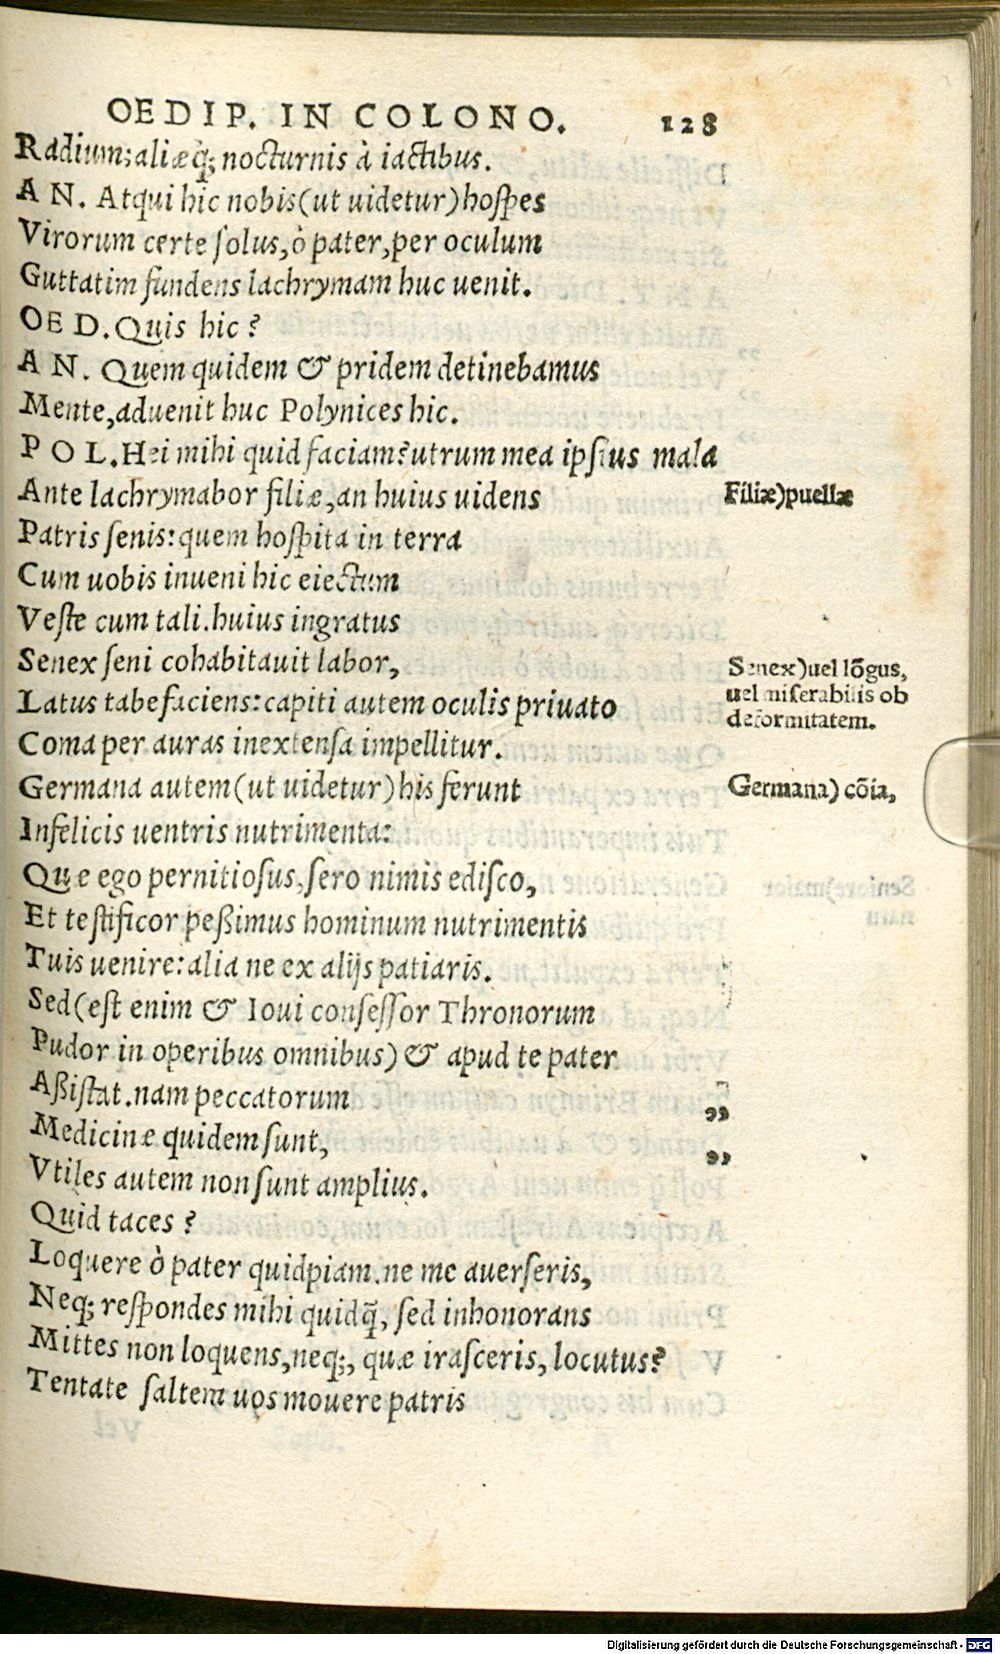 OEDIP. IN COLONO. 128
Radium: aliæq́; nocturnis à iactibus.
AN. Atqui hic nobis (ut uidetur) hospes
Virorum certe solus, ò pater, per oculum
Guttatim fundens lachrymam huc uenit.
OED. Quis hic?
AN. Quem quidem & pridem detinebamus
Mente, aduenit huc Polynices hic.
POL. Hei mihi quid faciam? utrum mea ipsius mala
Ante lachrymabor filiæ, an huius uidens
Filiæ) puellæ
Patris senis: quem hospita in terra
Cum uobis inueni hic eiectum
Veste cum tali. huius ingratus
Senex seni cohabitauit labor,
Senex) uel lõgus,
uel miserabilis ob
deformitatem.
Latus tabefaciens: capiti autem oculis priuato
Coma per auras inextensa impellitur.
Germana autem (ut uidetur) his ferunt
Germana) cõia,
Infelicis uentris nutrimenta:
Quæ ego pernitiosus, sero nimis edisco,
Et testificor peßimus hominum nutrimentis
Tuis uenire: alia ne ex alijs patiaris.
Sed (est enim & Ioui consessor Thronorum
Pudor in operibus omnibus) & apud te pater
Aßistat. nam peccatorum ,,
Medicinæ quidem sunt, ,,
Vtiles autem non sunt amplius.
Quid taces?
Loquere ò pater quidpiam. ne me auerseris,
Neq; respondes mihi quidq̃, sed inhonorans
Mittes non loquens, neq;, quæ irasceris, locutus?
Tentate saltem uos mouere patris
Digitalisierung gefördert durch die Deutsche Forschungsgemeinschaft - DFG